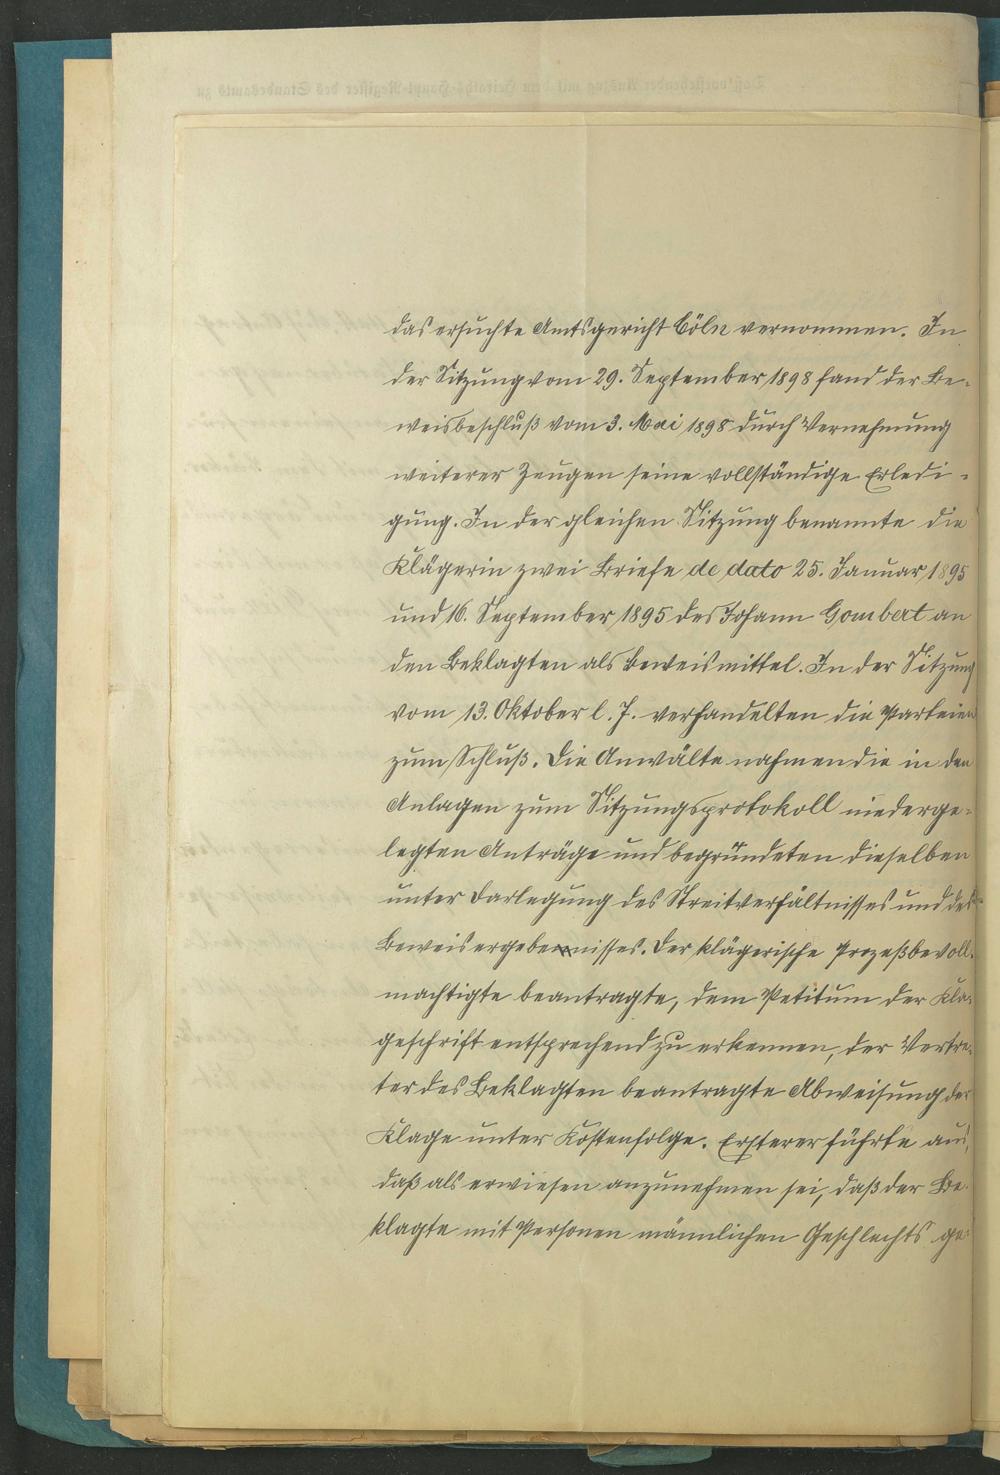 das ersuchte Amtsgericht Cöln vernommen. In
der Sitzung vom 29. September 1898 fand der Be-
weisbeschluß vom 3. Mai 1898 durch Vernehmung
weiterer Zeugen seine vollständige Erledi-
gung. In der gleichen Sitzung benannte die
Klägerin zwei Briefe de dato 25. Januar 1895
und 16. September 1895 des Johann Gombert an
den Beklagten als Beweismittel. In der Sitzung
vom 13. Oktober l. J. verhandelten die Parteien
zum Schluß. Die Anwälte nahmen die in den
Anlagen zum Sitzungsprotokoll niederge-
legten Anträge und begründeten dieselben
unter Darlegung des Streitverhältnisses und des
Beweisergebnisses. Der klägerische Prozeßbevoll-
mächtigte beantragte, dem Petitum der Kla-
geschrift entsprechend zu erkennen, der Vertre-
ter des Beklagten beantragte Abweisung der
Klage unter Kostenfolge. Ersterer führte aus,
daß als erwiesen anzunehmen sei, daß der Be-
klagte mit Personen männlichen Geschlechts ge-